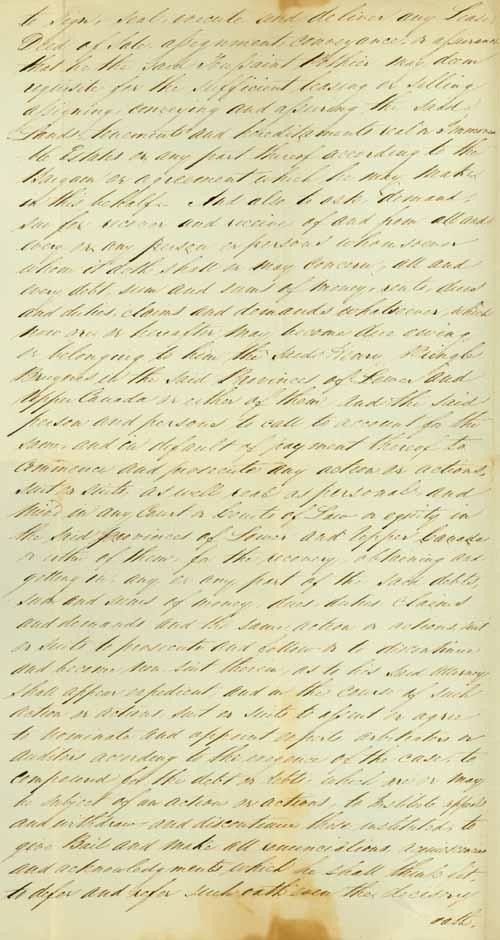 to Sign, Seal, execute and deliver any Lease
Deed of Sale, assignment, conveyance, or assurance
that he the said Toussaint Pothier may deem
requisite for the sufficient leasing or selling,
assigning, conveying and assuring the said
Lands, tenements and hereditaments real or Immova-
ble Estates or any part thereof according to the
Bargain or agreement which he may make
in this behalf. And also to ask, demand,
sue for, recover and receive of and from all and
every or any person or persons whomsoever
whom it doth, shall or may concern, all and
every debt, sum and sums of money, rents, dues
and duties, claims and demands whatsoever, which
now are or hereafter may become due owing
or belonging to him the said Henry Pringle
Bruyeres in the said Provinces of Lower and
Upper Canada or either of them and the said
person and persons to call to account for the
same, and in default of payment thereof to
commence and prosecute any action or actions,
suit or suits, as well real as personal and
mixed in any Court or Courts of Law or equity in
the said Provinces of Lower and Upper Canada
or either of them, for the recovery, obtaining and
getting in any or any part of the said debts,
sum and sums of money, dues, duties claims
and demands and the same action or actions, suit
or suits to prosecute and follow or to discontinue
and become non suit therein, as to his said attorney
shall appear expedient, and in the course of such
action or actions suit or suits to assent or agree
to nominate and appoint experts arbitrators or
auditors according to the exigence of the case, to
compound for the debt or debts which are or may
be subject of an action or actions, to Institute appeals
and withdraw and discontinue those instituted, to
give Bail and make all renunciations,
and acknowledgments which he shall think fit
to defer and refer such oath even the decisory
oath.